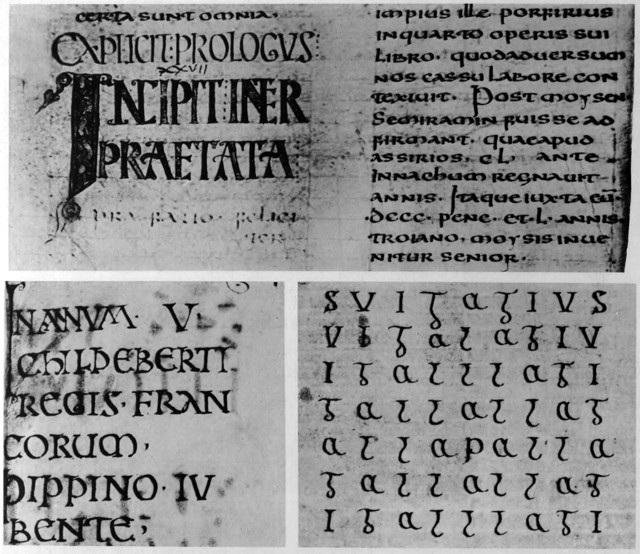 CERTA SUNT OMNIA·
EXPLICIT:PROLOGVS:
XXVII
INCIPIT INER
PRAETATA
PRA FATIO· FELICI
TER·
impius ille porfirius
inquarto operis sui
libro· quodaduersum
nos cassu labore con
texuit· Post moysen
Semiramin fuisse ad
firmant· quaeapud
assirios, cL ante
Innachum regnauit
annis· Itaque iuxta eū
·dccc· pene· et·L· annis
troiano, moysis inue
nitur senior·
NANVM· V·
CHILDEBERTI
REGIS·FRAN
CORUM,
PIPPINO·IV
BENTE;
S V I T a T I V S
V I T a l a T I V
I T a l l l a T I
T a l l a l l a T
a l l a p a l l a
T a l l a l l a T
I T a l l l a T I